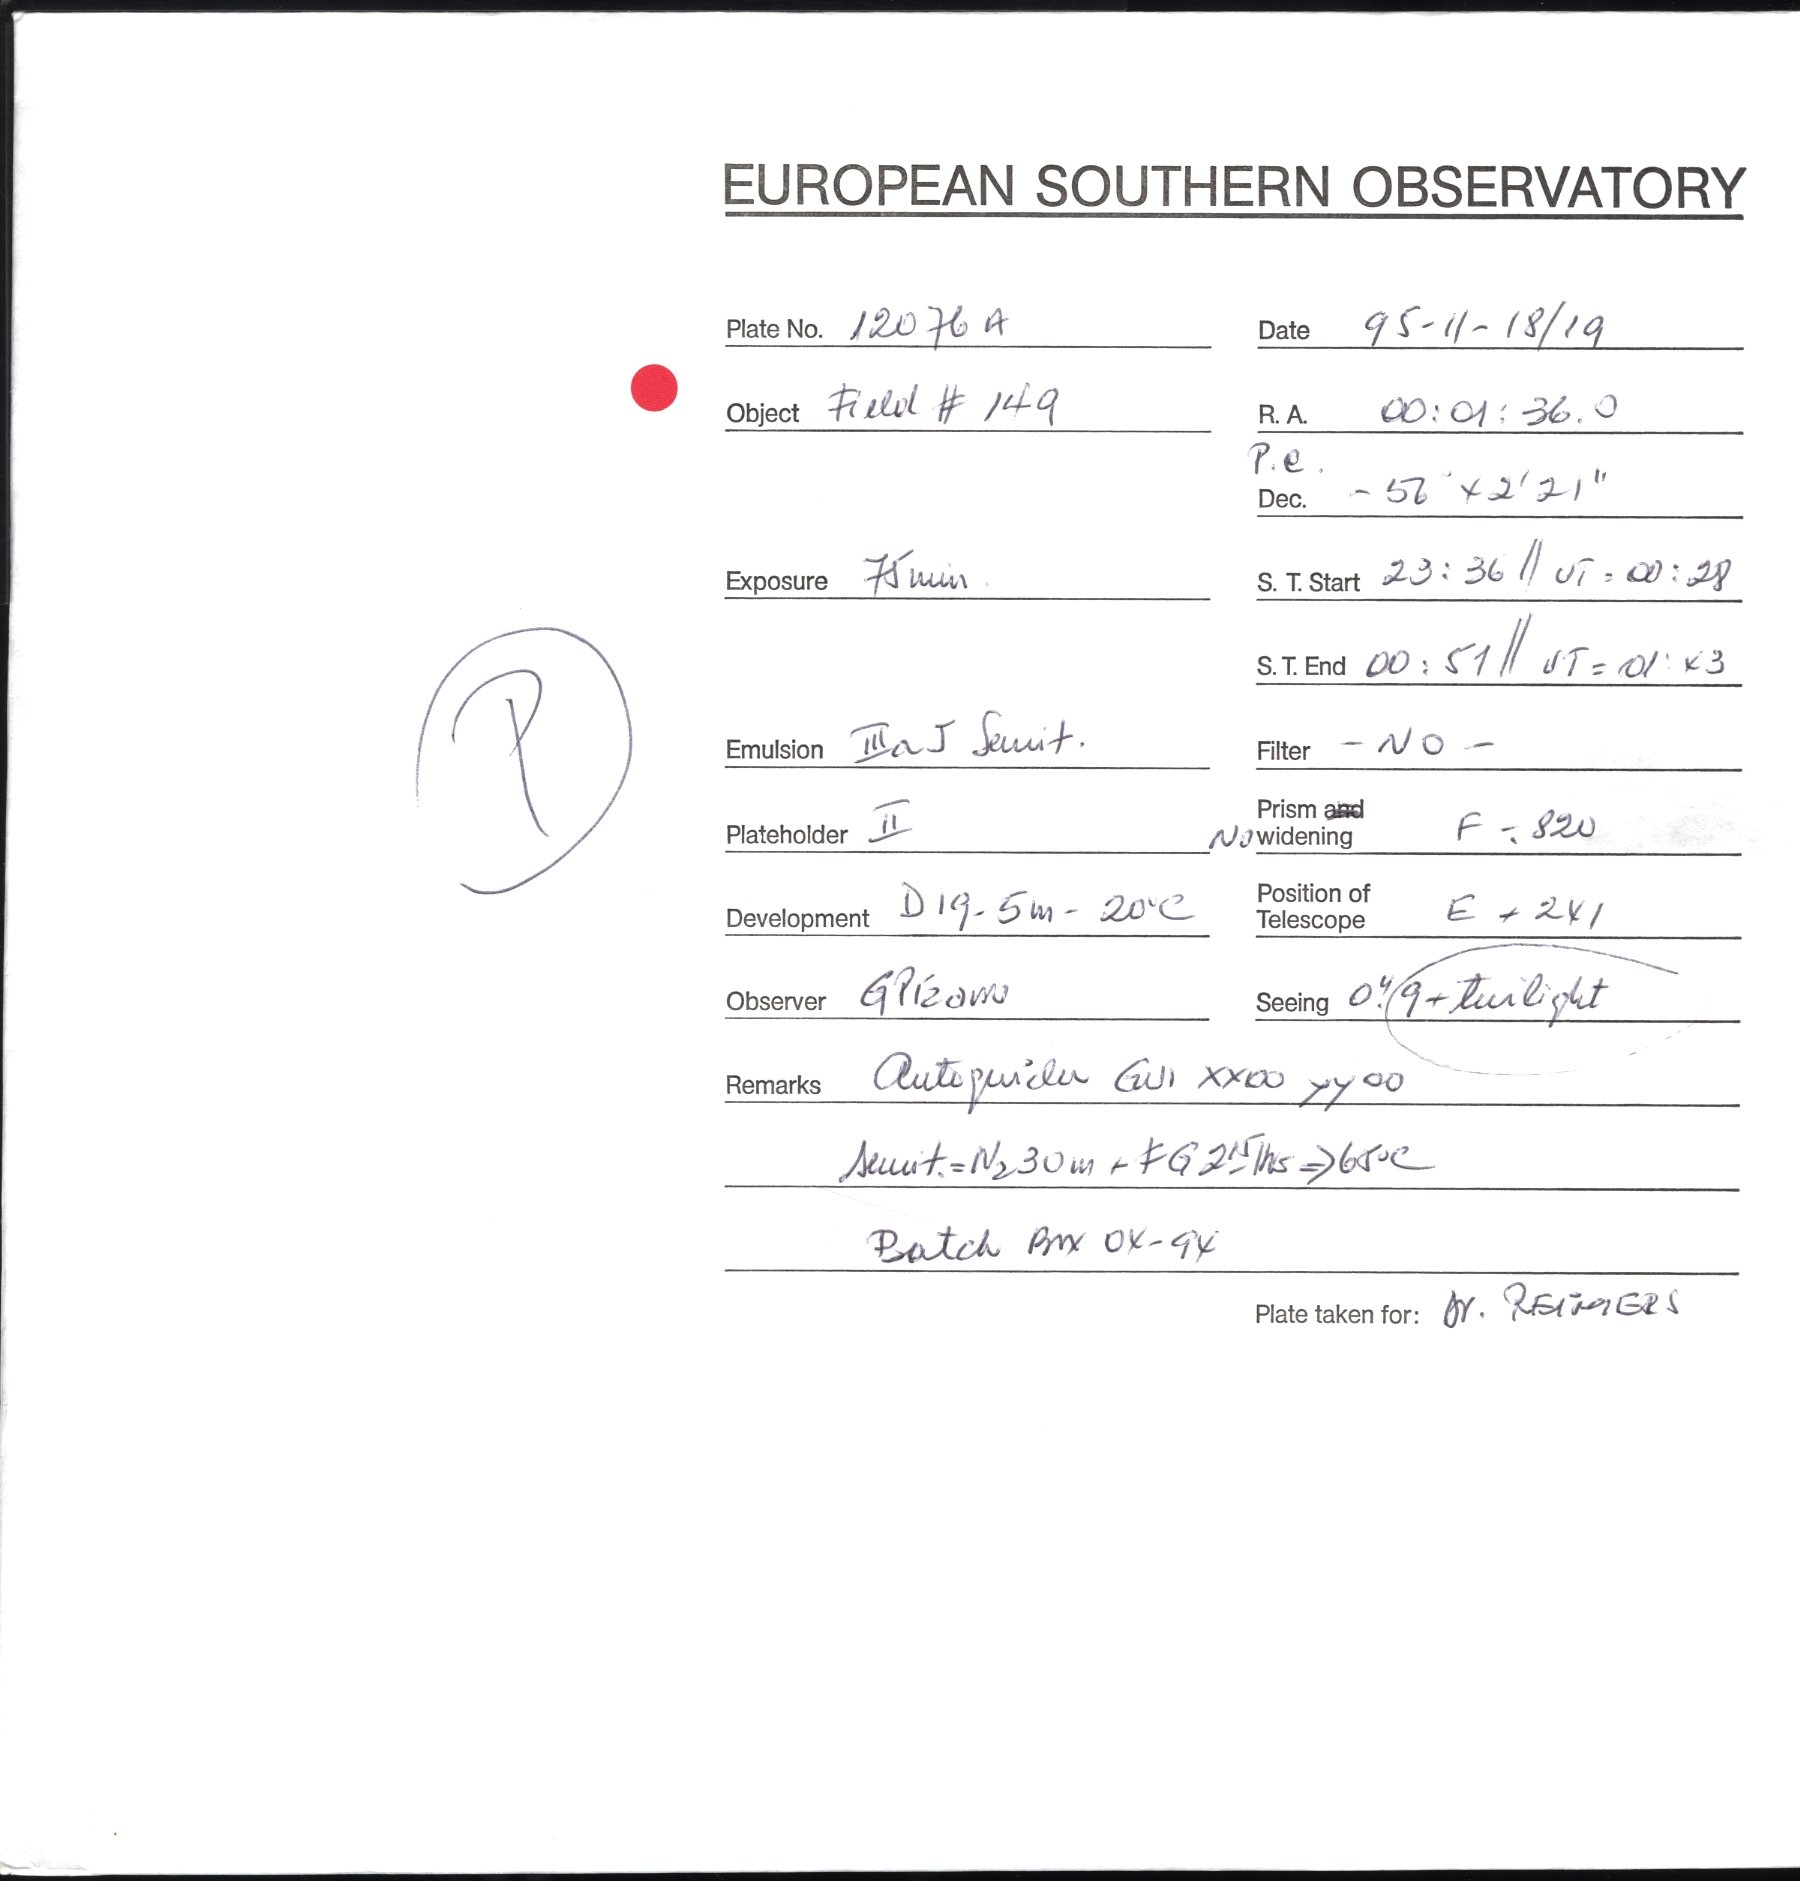 EUROPEAN SOUTHERN OBSERVATORY
Plate No. 12076 A
Date 95-11-18/19
Object Field # 149
R. A. 00:01:36.0
P.e.
Dec. -56° 42' 21"
Exposure 75 min.
S. T. Start 23:36 // UT = 00:28
S. T. End 00:51 // UT = 01:43
P
Emulsion IIIaJ Sensit.
Filter - NO -
Plateholder II
Prism and
No widening F - 820
Development D19 - 5m - 20°C
Position of
Telescope E + 241
Observer G Pizarro
Seeing 0".9 + twilight
Remarks Autoguider GW1 XX00 YY00
Sensit. = N2 30m + FG 2h15 => 65°C
Batch Box 04-94
Plate taken for: Dr. REIMERS